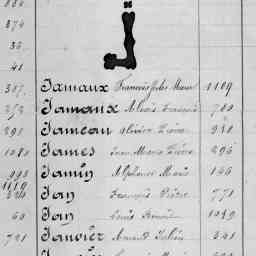 374
36.
41
J
387. Jamaux François Jules Marie 1109
252 Jamaux Alexis François 780
298 Jameau Olivier Pierre 940
1080 James Jean Marie Pierre 296
993 Jamin Alphonse Marie 146
1119
520 Jan François Pierre 771
60 Jan Louis 1049
721 Janvier Armand Julien 541